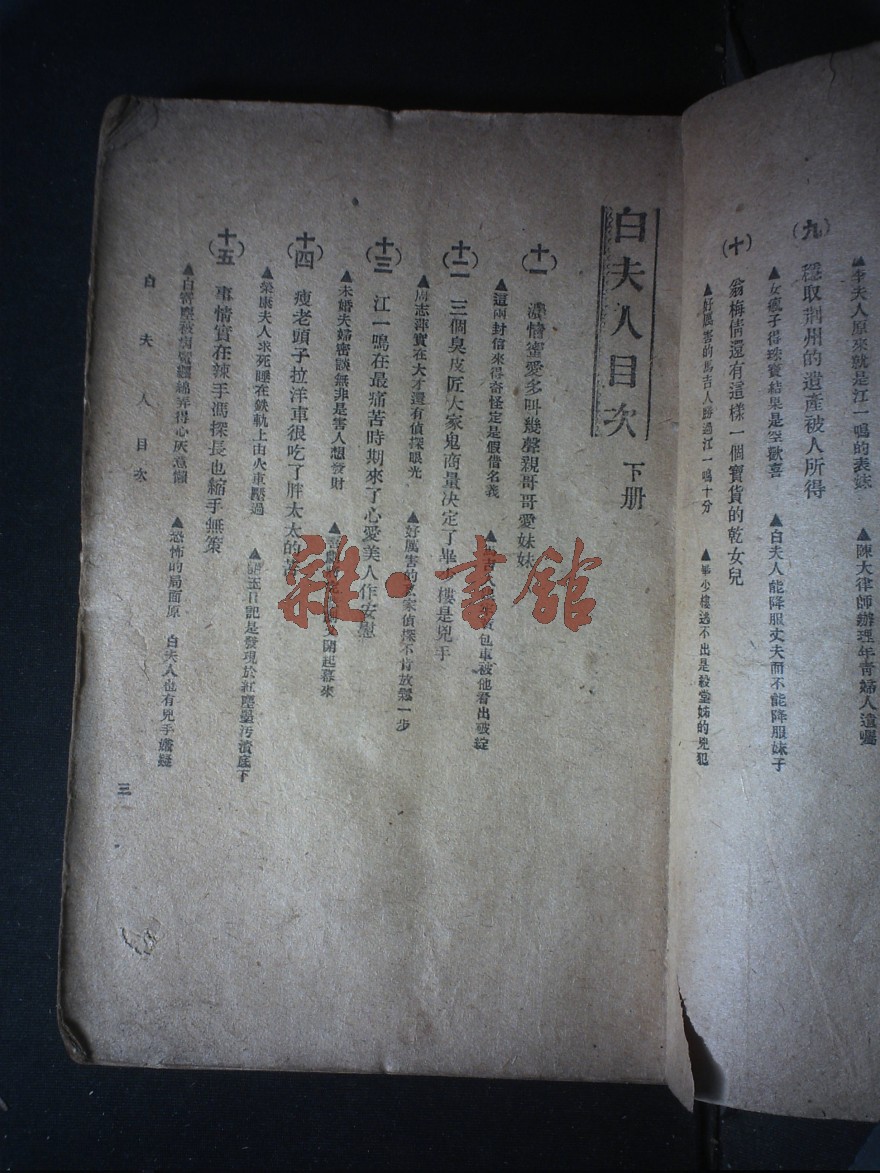 ▲李夫人原來就是江一鳴的表妹 ▲陳大律師辦理年靑婦人遺囑
(九) 穩取荆州的遺產被人所得
▲女瘋子得珠寶結果是空歡喜 ▲白夫人能降服丈夫而不能降服妹子
(十) 翁梅倩還有這樣一個寶貨的乾女兒
▲好厲害的馬吉人勝過江一鳴十分 ▲畢少樓逃不出是殺堂姊的兇犯
白夫人目次 下册
(十一) 濃情蜜愛多叫幾聲親哥哥愛妹妹
▲這兩封信來得奇怪定是假借名義 包車被他看出破綻
(十二) 三個臭皮匠大家鬼商量决定了畢 樓是兇手
▲周志澤實在大才還有偵探眼光 ▲好厲害的 家偵探不肯放鬆一步
(十三) 江一鳴在最痛苦時期來了心愛美人作安慰
▲未婚夫婦密談無非是害人想發財 開起幕來
(十四) 瘦老頭子拉洋車很吃了胖太太的
▲榮康夫人求死睡在鉄軌上由火車壓過 日記是發現於紅塵墨汚漬底下
(十五) 事情實在辣手馮探長也縮手無策
▲白 塵被病魔纒綿弄得心灰意懶 ▲恐怖的局面原 白夫人也有兇手嫌疑
白夫人目次
三
雜·書館